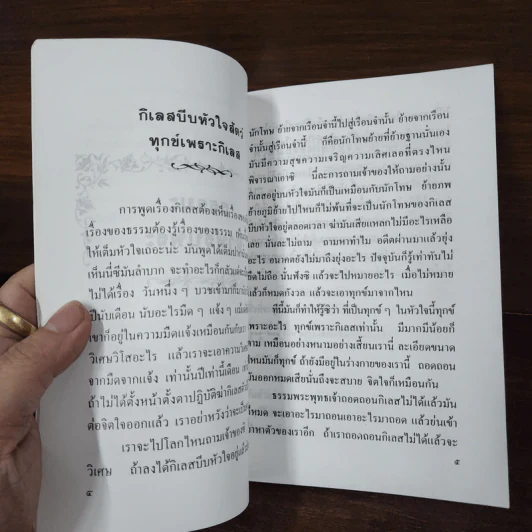 กิเลสบีบหัวใจสัตว์
ทุกข์เพราะกิเลส
การพูดเรื่องกิเลสต้องเห็นเรื่อง
เรื่องของธรรมต้องรู้เรื่องของธรรม
ให้เต็มหัวใจเถอะน่ะ มันพูดได้เต็มปาก
เห็นนี่ซีมันลำบาก จะทำอะไรก็กลัวแต่
ไม่ได้เรื่อง วันหนึ่ง ๆ บวชเข้ามาก็
ปีนับเดือน นับอะไรมืด ๆ แจ้ง ๆ
เขาก็อยู่ในความมืดแจ้งเหมือนกันกับ
วิเศษวิโสอะไร แล้วเราจะเอาความ
จากมืดจากแจ้ง เท่านั้นปีเท่านี้เดือน
ถ้าไม่ได้ตั้งหน้าตั้งตาปฏิบัติฆ่ากิเลส
ต่อจิตใจออกแล้ว เราอย่าหวังว่าจะ
เราจะไปโลกไหนถามเจ้าของซิ
วิเศษ ถ้าลงได้กิเลสบีบหัวใจอยู่
๔
นักโทษ ย้ายจากเรือนจำนี้ไปสู่เรือนจำนั้น ย้ายจากเรือน
จำนั้นสู่เรือนจำนี้ ก็คือนักโทษย้ายที่ย้ายฐานนั่นเอง
มันมีความสุขความเจริญความเลิศเลอที่ตรงไหน
พิจารณาเอาซิ นี่ละการถามเจ้าของให้ถามอย่างนั้น
กิเลสอยู่บนหัวใจมันก็เป็นเหมือนกับนักโทษ ย้ายภพ
ย้ายภูมิย้ายไปไหนก็ไม่พ้นที่จะเป็นนักโทษของกิเลส
บีบหัวใจอยู่ตลอดเวลา ฆ่ามันเสียแหลกไม่มีอะไรเหลือ
เลย นั่นละไม่ถาม ถามหาทำไม อดีตผ่านมาแล้วยุ่ง
อะไร อนาคตยังไม่มาถึงยุ่งอะไร ปัจจุบันก็รู้เท่าทันไม่
ยึดไม่ถือ นั่นฟังซิ แล้วจะไปหมายอะไร เมื่อไม่หมาย
แล้วก็หมดกังวล แล้วจะเอาทุกข์มาจากไหน
ทีนี้มันก็ทำให้รู้ซิว่า ที่เป็นทุกข์ ๆ ในหัวใจนี้ทุกข์
เพราะอะไร ทุกข์เพราะกิเลสเท่านั้น มีมากมีน้อยก็
ตาม เหมือนอย่างหนามอย่างเสี้ยนเรานี้ ละเอียดขนาด
ไหนมันก็ทุกข์ ถ้ายังมีอยู่ในร่างกายของเรานี้ ถอดถอน
มันออกหมดเสียนั่นถึงจะสบาย จิตใจก็เหมือนกัน
ธรรมพระพุทธเจ้าถอดถอนกิเลสไม่ได้แล้วมัน
หมด จะเอาอะไรมาถอนเอาอะไรมาถอด แล้วย่นเข้า
มาหาตัวของเราอีก ถ้าเราถอดถอนกิเลสไม่ได้แล้วจะ
๕